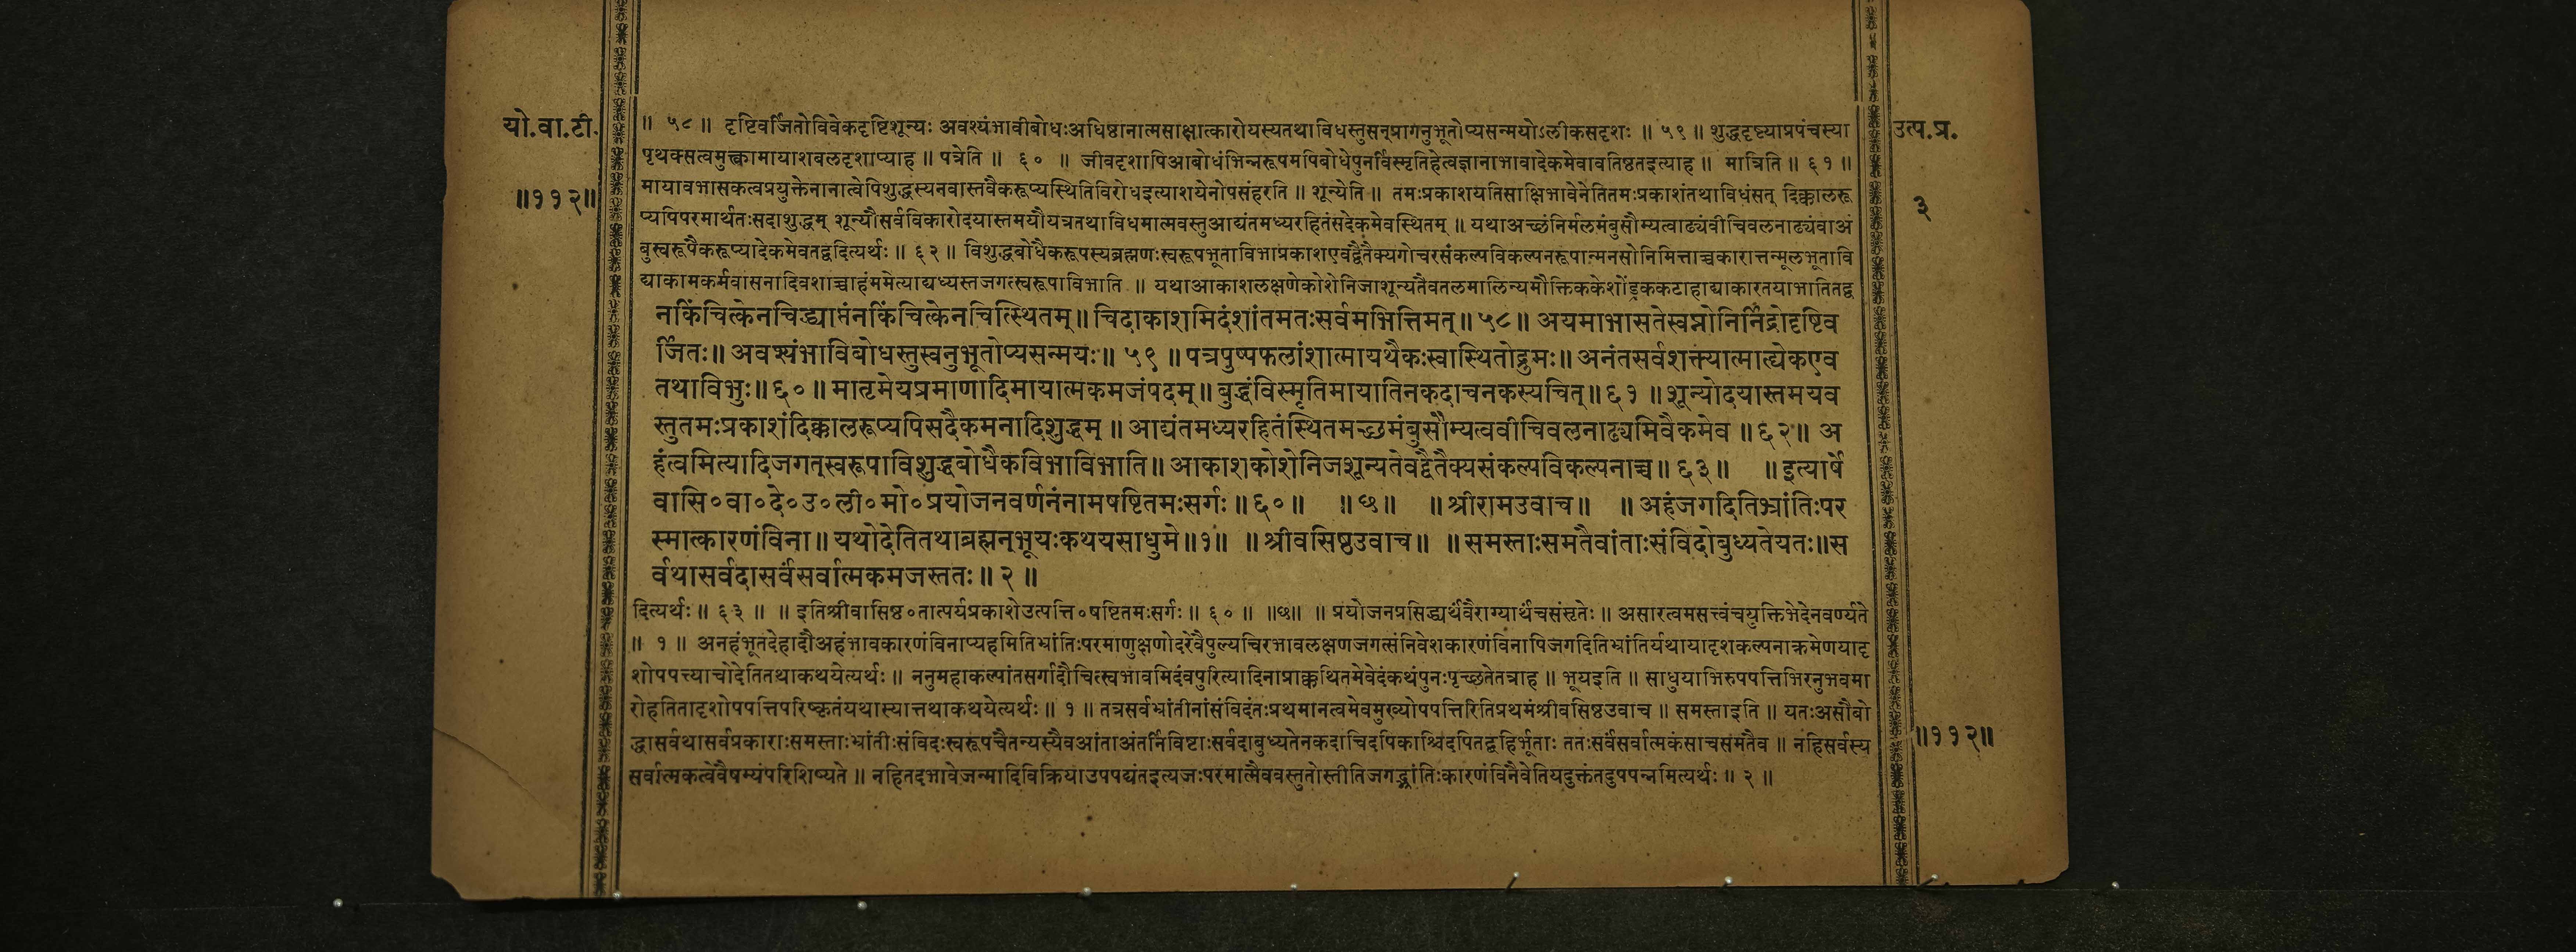 यो.वा.टी.
॥११२॥
॥ ५८ ॥ दृष्टिवर्जितोविवेकदृष्टिशून्यः अवश्यंभावीबोधःअधिष्ठानात्मसाक्षात्कारोयस्यतथाविधस्तुसन्प्रागनुभूतोप्यसन्मयोऽलीकसदृशः ॥ ५९ ॥ शुद्धदृष्ट्याप्रपंचस्या
पृथक्सत्वमुक्त्वामायाशबलदृशाप्याह ॥ पत्रेति ॥ ६० ॥ जीवदृशापिआबोधंभिन्नरूपमपिबोधेपुनर्विस्मृतिहेत्वज्ञानाभावादेकमेवावतिष्ठतइत्याह ॥ मात्रिति ॥ ६१ ॥
मायावभासकत्वप्रयुक्तेनानात्वेपिशुद्धस्यनवास्तवैकरूप्यस्थितिविरोधइत्याशयेनोपसंहरति ॥ शून्येति ॥ तमःप्रकाशयतिसाक्षिभावेनेतितमःप्रकाशंतथाविधंसत् दिक्कालरू
प्यपिपरमार्थतःसदाशुद्धम् शून्यौसर्वविकारोदयास्तमयौयत्रतथाविधमात्मवस्तुआद्यंतमध्यरहितंसदेकमेवस्थितम् ॥ यथाअच्छंनिर्मलमंबुसौम्यत्वाढ्यंवीचिवलनाढ्यंवाअं
बुस्वरूपैकरूप्यादेकमेवतद्वदित्यर्थः ॥ ६२ ॥ विशुद्धबोधैकरूपस्यब्रह्मणःस्वरूपभूताविभाप्रकाशएवद्वैतैक्यगोचरसंकल्पविकल्पनरूपान्मनसोनिमित्ताच्चकारात्तन्मूलभूतावि
द्याकामकर्मवासनादिवशाच्चाहंममेत्याद्यध्यस्तजगत्स्वरूपाविभाति ॥ यथाआकाशलक्षणेकोशेनिजाशून्यतैवतलमालिन्यमौक्तिककेशोंड्रककटाहाद्याकारतयाभातितद्व
नकिंचित्केनचिद्व्याप्तंनकिंचित्केनचित्स्थितम् ॥ चिदाकाशमिदंशांतमतःसर्वमभित्तिमत् ॥ ५८ ॥ अयमाभासतेस्वप्नोनिर्निद्रोदृष्टिव
र्जितः ॥ अवश्यंभाविबोधस्तुस्वनुभूतोप्यसन्मयः ॥ ५९ ॥ पत्रपुष्पफलांशात्मायथैकःस्वास्थितोद्रुमः ॥ अनंतसर्वशक्त्यात्मात्द्येकएव
तथाविभुः ॥ ६० ॥ मातृमेयप्रमाणादिमायात्मकमजंपदम् ॥ बुद्धंविस्मृतिमायातिनकदाचनकस्यचित् ॥ ६१ ॥ शून्योदयास्तमयव
स्तुतमःप्रकाशंदिक्कालरूप्यपिसदैकमनादिशुद्धम् ॥ आद्यंतमध्यरहितंस्थितमच्छमंबुसौम्यत्ववीचिवलनाढ्यमिवैकमेव ॥ ६२ ॥ अ
हंत्वमित्यादिजगत्स्वरूपाविशुद्धबोधैकविभाविभाति ॥ आकाशकोशेनिजशून्यतेवद्वैतैक्यसंकल्पविकल्पनाच्च ॥ ६३ ॥ ॥ इत्यार्षे
वासि॰वा॰दे॰उ॰ली॰मो॰प्रयोजनवर्णनंनामषष्टितमःसर्गः ॥ ६० ॥ ॥ ७ ॥ ॥ श्रीरामउवाच ॥ ॥ अहंजगदितिभ्रांतिःपर
स्मात्कारणंविना ॥ यथोदेतितथाब्रह्मन्भूयःकथयसाधुमे ॥१॥ ॥ श्रीवसिष्ठउवाच ॥ ॥ समस्ताःसमतैवांताःसंविदोबुध्यतेयतः ॥स
र्वथासर्वदासर्वंसर्वात्मकमजस्ततः ॥ २ ॥
दित्यर्थः ॥ ६३ ॥ ॥ इतिश्रीवासिष्ठ॰तात्पर्यप्रकाशेउत्पत्ति॰षष्टितमःसर्गः ॥ ६० ॥ ॥७॥ ॥ प्रयोजनप्रसिद्ध्यर्थंवैराग्यार्थंचसंसृतेः ॥ असारत्वमसत्त्वंचयुक्तिभेदेनवर्ण्यते
॥ १ ॥ अनहंभूतदेहादौअहंभावकारणंविनाप्यहमितिभ्रांतिःपरमाणुक्षणोदरेवैपुल्यचिरभावलक्षणजगत्संनिवेशकारणंविनापिजगदितिभ्रांतिर्यथायादृशकल्पनाक्रमेणयादृ
शोपपत्त्याचोदेतितथाकथयेत्यर्थः ॥ ननुमहाकल्पांतसर्गादौचित्स्वभावमिदंवपुरित्यादिनाप्राक्कथितमेवेदंकथंपुनःपृच्छतेतत्राह ॥ भूयइति ॥ साधुयाभिरुपपत्तिभिरनुभवमा
रोहतितादृशोपपत्तिपरिष्कृतंयथास्यात्तथाकथयेत्यर्थः ॥ १ ॥ तत्रसर्वभ्रांतीनांसंविदंतःप्रथमानत्वमेवमुख्योपपत्तिरितिप्रथमंश्रीवसिष्ठउवाच ॥ समस्ताइति ॥ यतःअसौबो
द्धासर्वथासर्वप्रकाराःसमस्ताःभ्रांतीःसंविदःस्वरूपचैतन्यस्यैवआंताअंतर्निविष्टाःसर्वदाबुध्यतेनकदाचिदपिकाश्चिदपितद्बहिर्भूताः ततःसर्वंसर्वात्मकंसाचसमतैव ॥ नहिसर्वस्य
सर्वात्मकत्वेवैषम्यंपरिशिष्यते ॥ नहितदभावेजन्मादिविक्रियाउपपद्यंतइत्यजःपरमात्मैववस्तुतोस्तीतिजगद्भ्रांतिःकारणंविनैवेतियदुक्तंतदुपपन्नमित्यर्थः ॥ २ ॥
उत्प.प्र.
३
॥११२॥